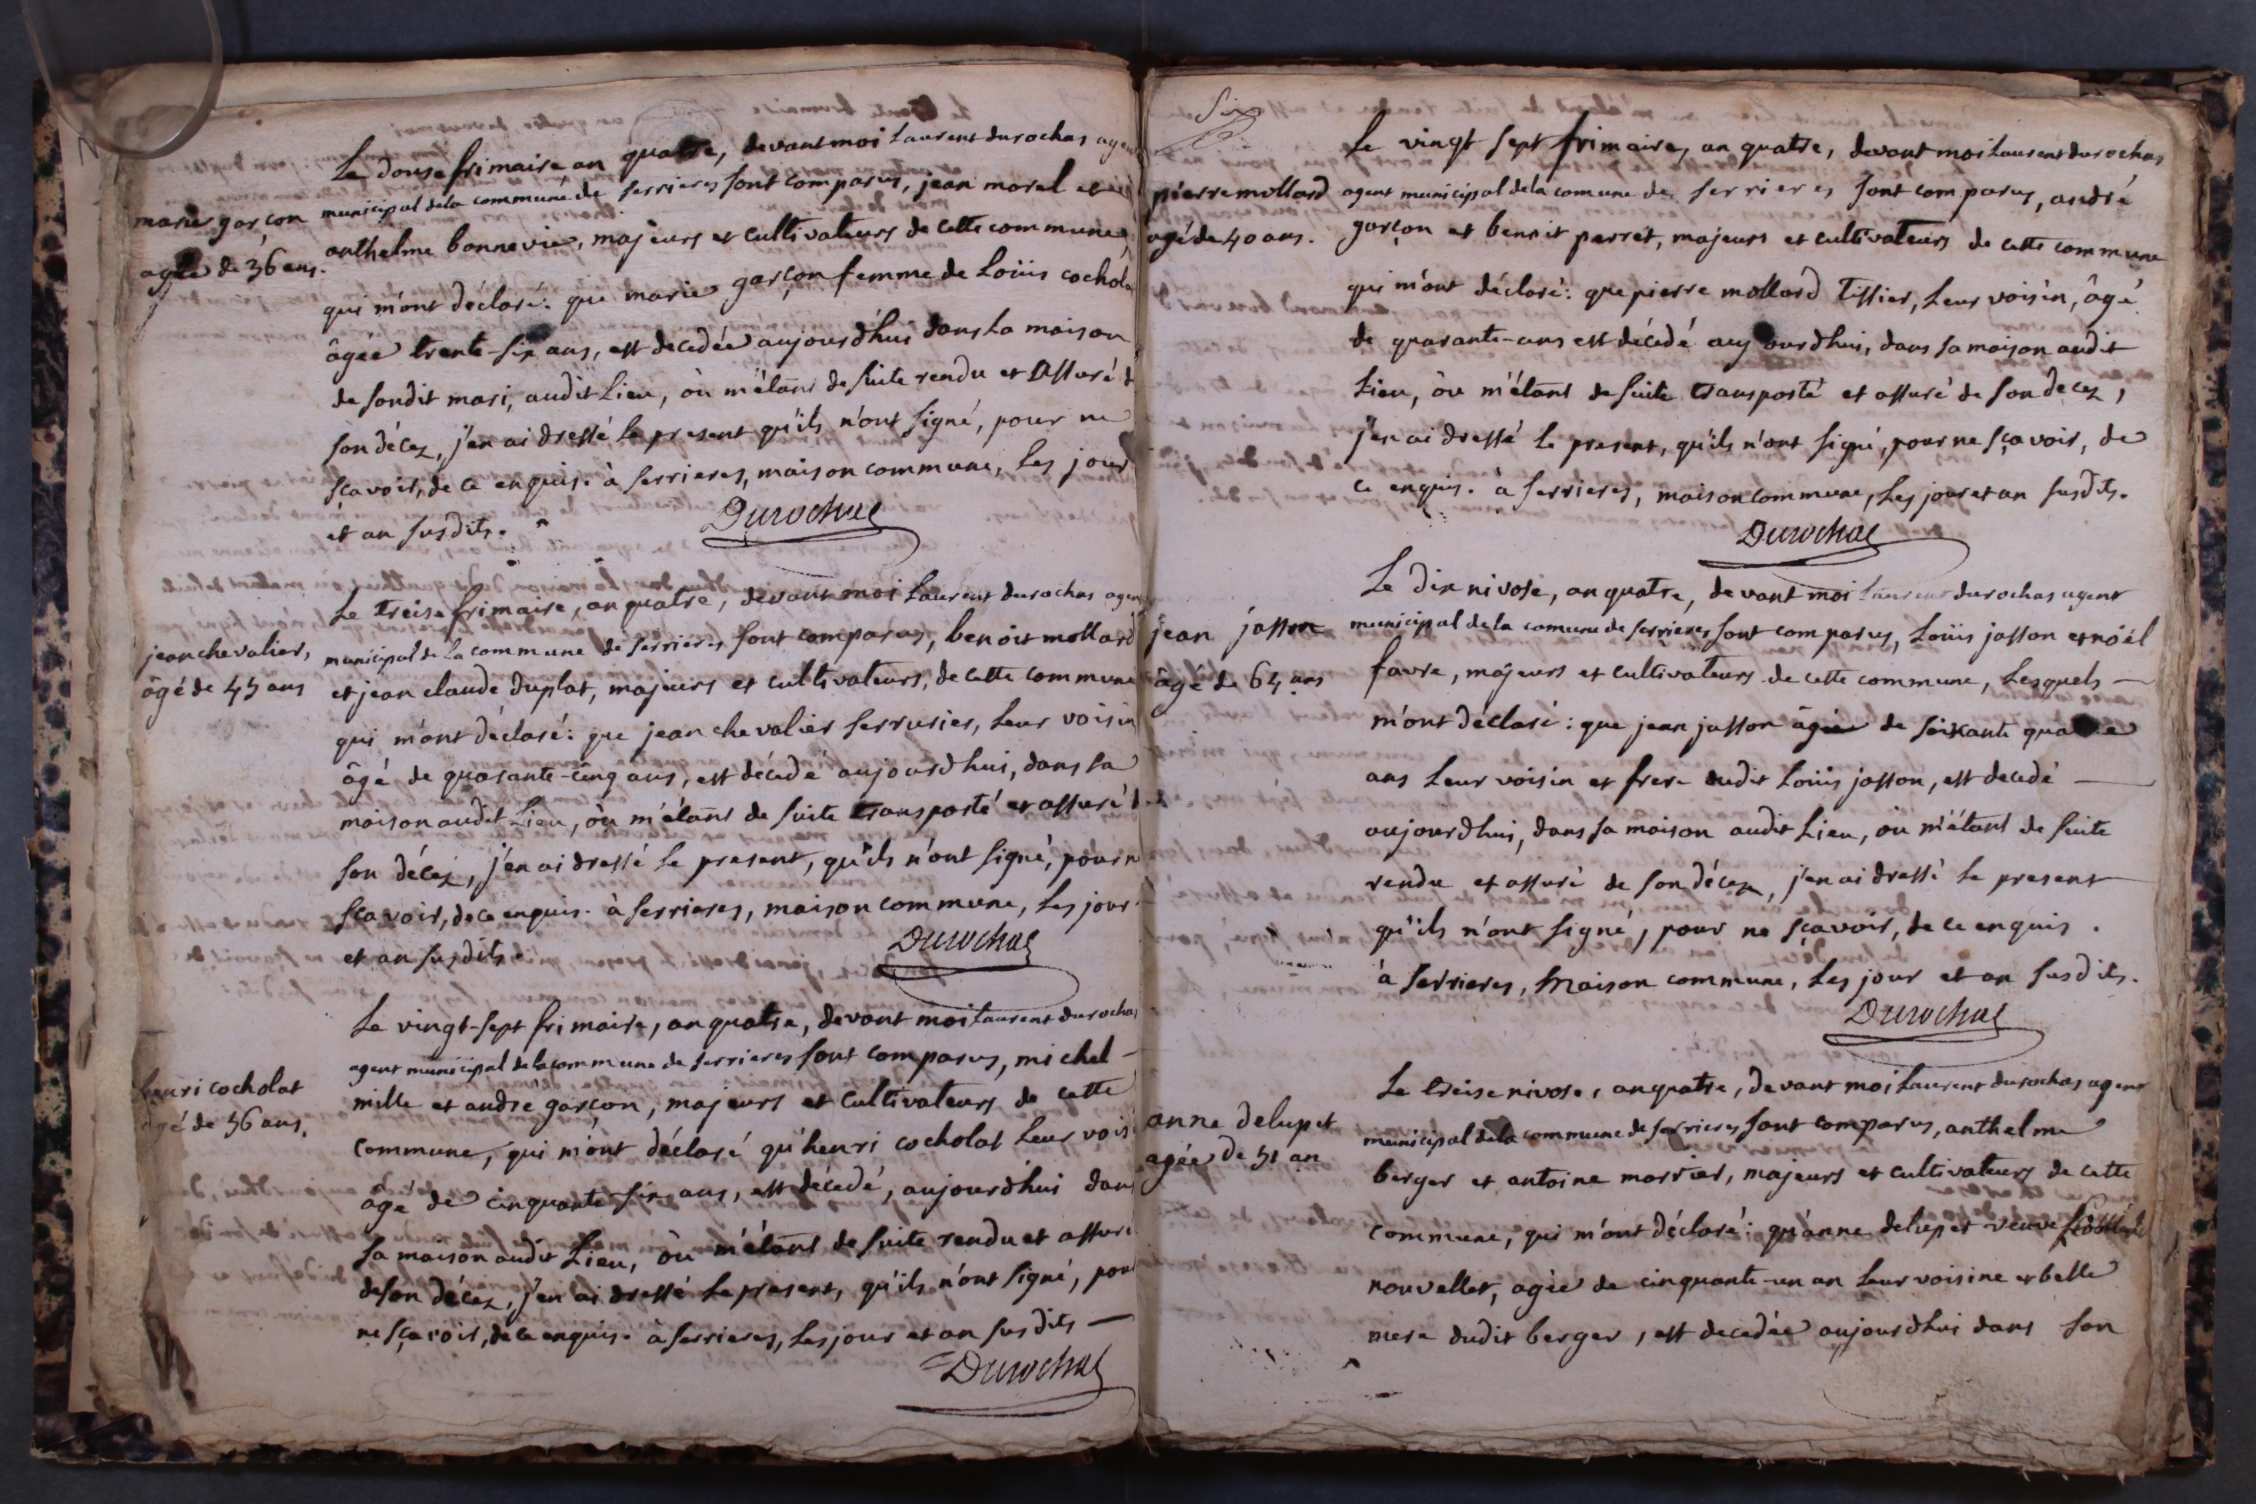 Le douse frimaire an quatre, devant moi Laurent durochas agent
municipal de la commune de serrieres sont comparus, jean morel et
marie garçon
agée de 36 ans.
anthelme bonnevie, majeurs et cultivateurs de cette commune,
qui m'ont déclaré: que marie garçon femme de Loüis cocholat
âgée trente-six ans, est decedée aujourd'hui dans la maison
de sondit mari, audit Lieu, où m'étant de suite rendu et assuré de
son décez, j'en ai dressé le present qu'ils n'ont signé, pour ne
sçavoir, de ce enquis. à serrieres, maison commune, les jour
et an susdits.
Durochas
Le treise frimaire, an quatre, devant moi Laurent durochas agent
jean chevalier,
âgé de 45 ans
municipal de la commune de serrieres sont comparus, benoit mollard
et jean claude duplat, majeurs et cultivateurs, de cette commune
qui m'ont déclaré: que jean chevalier serrurier, leur voisin
âgé de quarante-cinq ans, est décédé aujourdhui, dans sa
maison audit Lieu, où m'étant de suite transporté et assuré de
son décez, j'en ai dressé le present, qu'ils n'ont signé, pour ne
sçavoir, de ce enquis. à serrieres, maison commune, Les jour
et an susdits.
Durochas
Le vingt-sept frimaire, an quatre, devant moi Laurent durochas
agent municipal de la commune de serrieres sont comparus, michel
henri cocholat
âgé de 56 ans.
mille et andré garçon, majeurs et cultivateurs de cette
commune, qui m'ont déclaré qu'henri cocholat leur voisin
âgé de cinquante-six ans, est décédé, aujourd'hui dans
sa maison audit Lieu, où m'étant de suite rendu et assuré
de son décez, j'en ai dressé le present, qu'ils n'ont signé, pour
ne sçavoir, de ce enquis. à serrieres, les jour et an susdits
Durochas
Six
Le vingt sept frimaire, an quatre, devant moi Laurent durochas
pierre mollard
agé de 40 ans.
agent municipal de la comune de serrieres sont comparus, andré
garçon et benoit perret, majeurs et cultivateurs de cette commune
qui m'ont déclaré: que pierre mollard tissier, leur voisin, âgé
de quarante-ans est décédé aujourdhui, dans sa maison audit
Lieu, où m'étant de suite transporté et assuré de son decez,
j'en ai dressé le present, qu'ils n'ont signé, pour ne sçavoir, de
ce enquis. à serrieres, maison commune, Les jour et an susdits.
Durochas
Le dix nivose, an quatre, devant moi Laurent durochas agent
jean josson
âgé de 64 ans
municipal de la comune de serrieres sont comparus, Loüis josson et nöel
favre, majeurs et cultivateurs de cette commune, Lesquels
m'ont déclaré: que jean josson âgée de soixante quatre
ans leur voisin et frere dudit Loüis josson, est decedé
aujourdhui, dans sa maison audit Lieu, où m'étant de suite
rendu et assuré de son décez, j'en ai dressé le present
qu'ils n'ont signé, pour ne sçavoir, de ce enquis.
à serrieres, maison commune, Les jour et an susdits.
Durochas
Le treise nivose, an quatre, devant moi Laurent durochas agent
anne delupet
agée de 51 an
municipal de la commune de serrieres sont comparus, anthelme
berger et antoine marrier, majeurs et cultivateurs de cette
commune, qui m'ont déclaré: qu'anne delupet veuve
nouvellet, agée de cinquante-un an leur voisine et belle
mere dudit berger, est decedée aujourdhui dans son